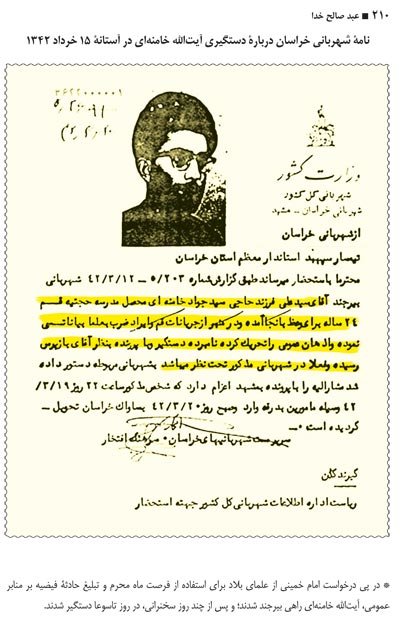 ۲۱۰ ■ عبد صالح خدا
نامهٔ شهربانی خراسان دربارهٔ دستگیری آیت‌الله خامنه‌ای در آستانهٔ ۱۵ خرداد ۱۳۴۲
وزارت کشور
شهربانی کل کشور
شهربانی خراسان – مشهد
از شهربانی خراسان
تیمسار سپهبد استاندار معظم استان خراسان
محترما باستحضار میرساند طبق گزارش شماره ۵/۲۰۳ – ۴۲/۳/۱۲ شهربانی
بیرجند آقای سید علی فرزند حاجی سید جواد خامنه ای محصل مدرسه حجتیه قم
۲۴ ساله برای وعظ بانجا آمده و در منبر از جریانات قم و ایراد ضرب بعلما بیاناتی
نموده و اذهان عمومی را تحریک کرده نامبرده دستگیر و با پرونده بنظر آقای بازپرس
رسیده و فعلا در شهربانی مذکور تحت نظر میباشد بشهربانی مربوطه دستور داده
شد مشارالیه را با پرونده بمشهد اعزام دارد که شخص مذکور ساعت ۲۲ روز ۱۹/۳/
۴۲ وسیله مامورین بدرقه وارد و صبح روز ۴۲/۳/۲۰ بساواک خراسان تحویل –
گردیده است .
سرپرست شهربانیهای خراسان . سرهنگ افتخار
گیرندگان
ریاست اداره اطلاعات شهربانی کل کشور جهته استحضار
* در پی درخواست امام خمینی از علمای بلاد برای استفاده از فرصت ماه محرم و تبلیغ حادثهٔ فیضیه بر منابر
عمومی، آیت‌الله خامنه‌ای راهی بیرجند شدند؛ و پس از چند روز سخنرانی، در روز تاسوعا دستگیر شدند.